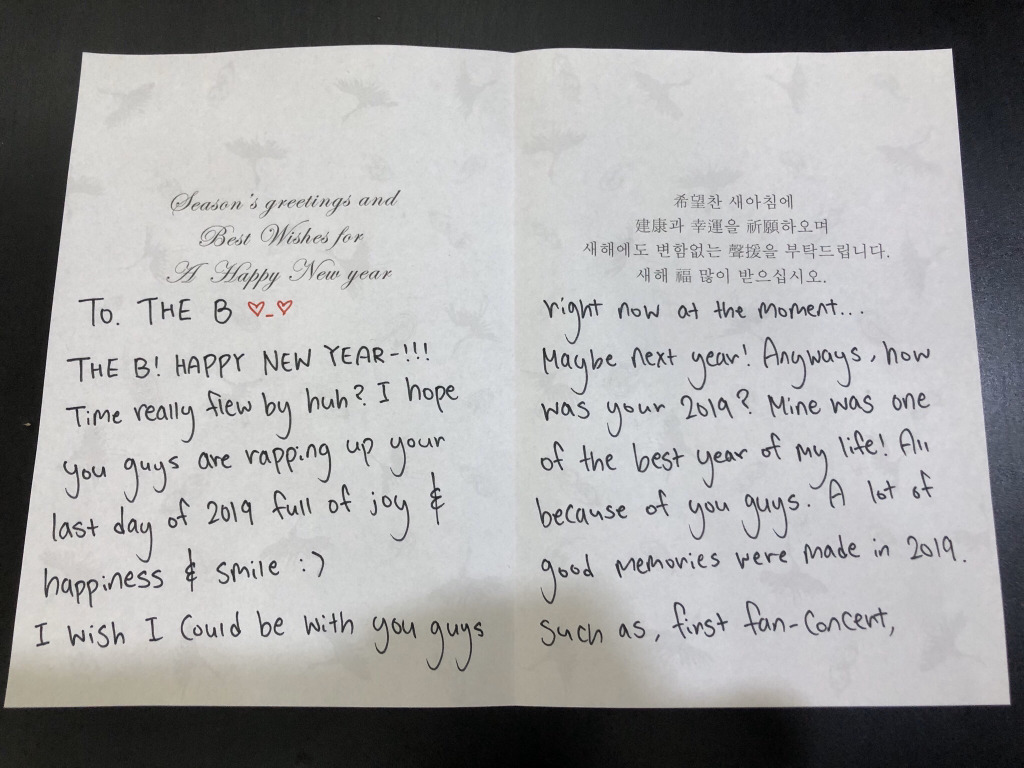 Season's greetings and
Best Wishes for
A Happy New year
To. THE B ♡_♡
THE B! HAPPY NEW YEAR-!!!
Time really flew by huh? I hope
you guys are rapping up your
last day of 2019 full of joy &
happiness & smile :)
I wish I could be with you guys
希望찬 새아침에
建康과 幸運을 祈願하오며
새해에도 변함없는 聲援을 부탁드립니다.
새해 福 많이 받으십시오.
right now at the moment...
Maybe next year! Anyways, how
was your 2019? Mine was one
of the best year of my life! All
because of you guys. A lot of
good memories were made in 2019.
Such as, first fan-concert,